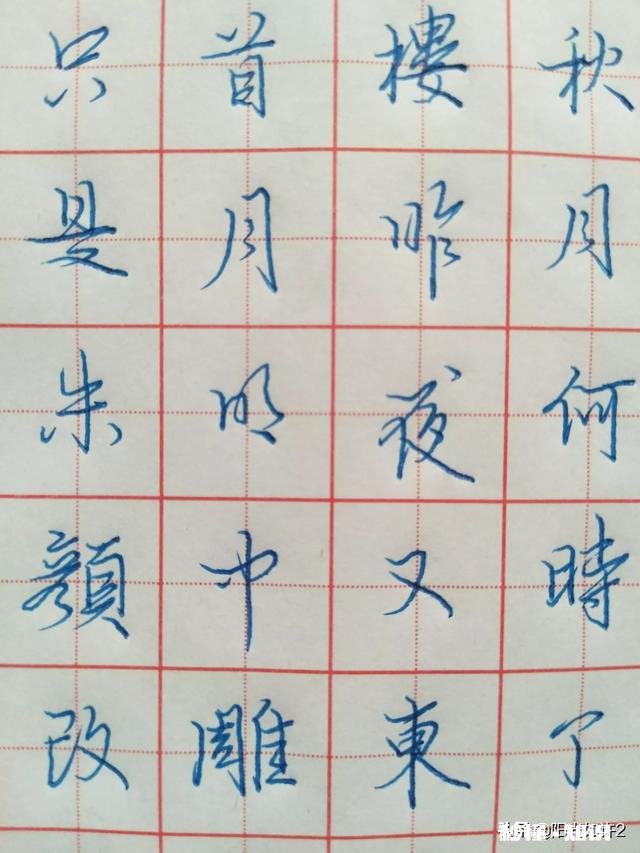 秋月何時了
樓昨夜又東
首月明中雕
只是朱顔改